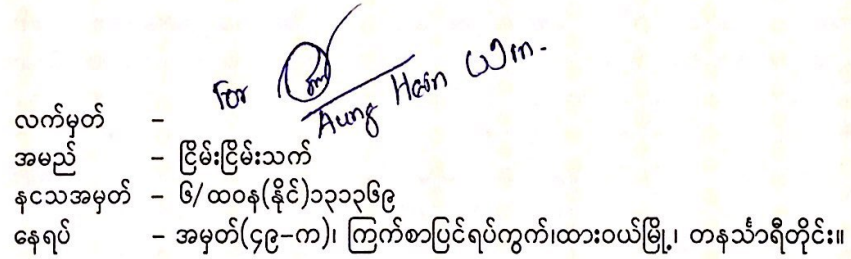 For
Aung Hein Win.
လက်မှတ် –
အမည် – ငြိမ်းငြိမ်းသက်
နငသအမှတ် – ၆/ထဝန(နိုင်)၁၃၁၃၆၉
နေရပ် – အမှတ်(၄၉–က)၊ ကြက်စာပြင်ရပ်ကွက်၊ထားဝယ်မြို့၊ တနင်္သာရီတိုင်း။